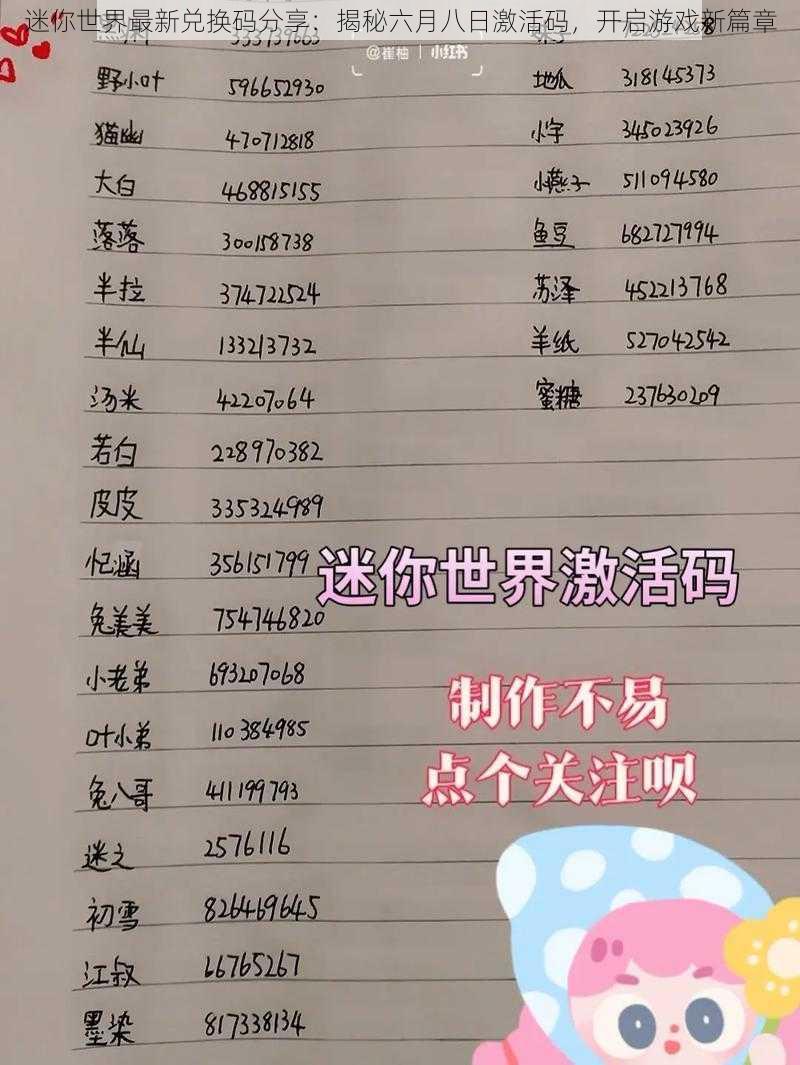 迷你世界最新兑换码分享：揭秘六月八日激活码，开启游戏新篇章
@崔柚 | 小红书
野小叶 596652930
猫幽 470712818
大白 468815155
落落 300158738
半拉 374722524
半仙 133213732
汤米 42207064
若白 228970382
皮皮 335324989
忆涵 356151799
兔美美 754746820
小老弟 693207068
叶小弟 110384985
兔八哥 411199793
迷之 2576116
初雪 826469645
江叔 66765267
墨染 817338134
地瓜 318145373
小字 345023926
小燕子 511094580
鱼豆 682727994
苏泽 452213768
羊纸 527042542
蜜糖 237630209
迷你世界激活码
制作不易
点个关注呗